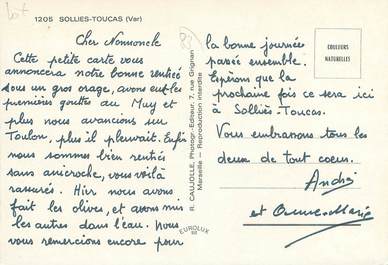 1205 SOLLIES-TOUCAS (Var)
Cher Nonmoncle
Cette petite carte vous
annoncera notre bonne rentrée
sous un gros orage, avons eut les
premières gouttes au Muy et
plus nous avancions sur
Toulon, plus il pleuvait. Enfin
nous sommes bien rentrés
sans anicroche, vous voilà
rassurés. Hier nous avons
fait les olives, et avons mis
les autres dans l'eau. Nous
vous remercions encore pour
R. CAUJOLLE, Photogr.-Editeur, 7, rue Grignan
Marseille — Reproduction interdite
EUROLUX
la bonne journée
passée ensemble.
Espérons que la
prochaine fois ce sera ici
à Solliès-Toucas.
Vous embrassons tous les
deux de tout coeur.
André
et Anne-Marie
COULEURS
NATURELLES